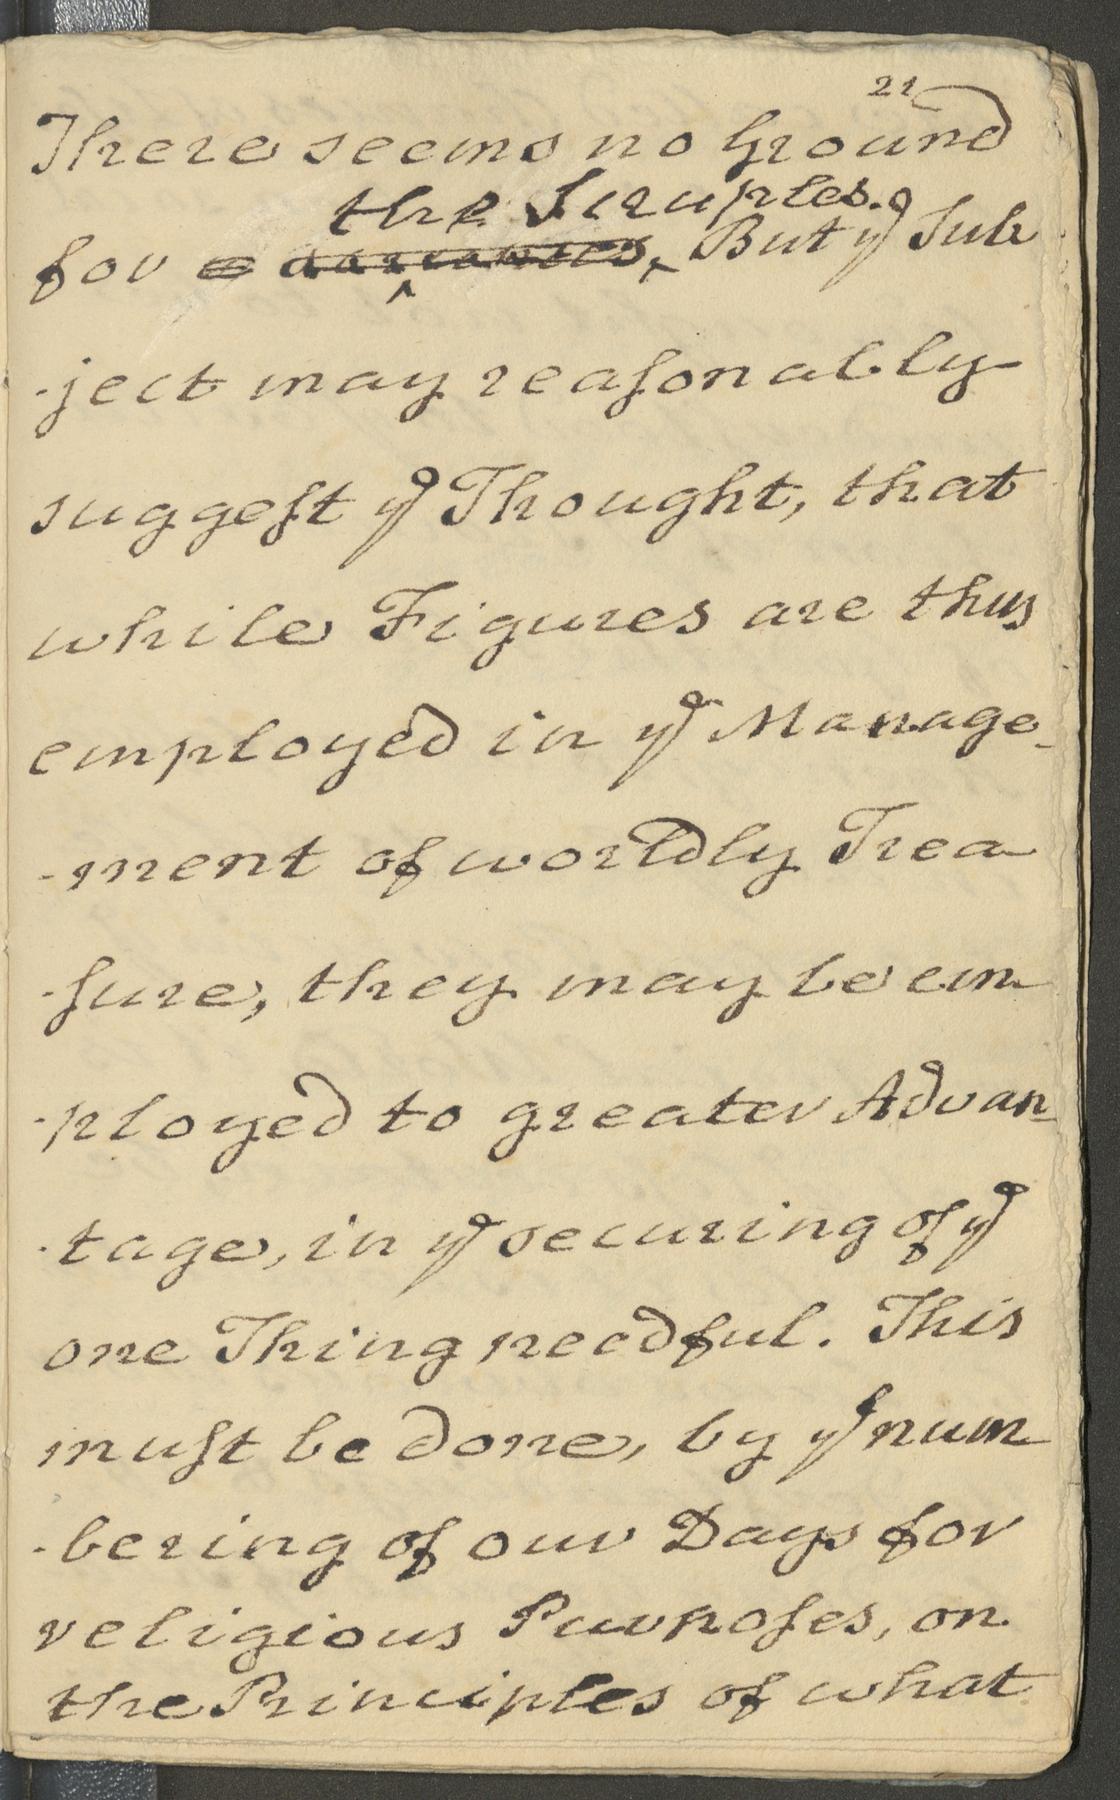 21
There seems no Ground
the Scruples.
for But yᵉ Sub
-ject may reaſonably
suggeſt yᵉ Thought, that
while Figures are thus
employed in yᵉ Manage-
-ment of worldly Trea
-ſure, they may be em
-ployed to greater Advan
-tage, in yᵉ securing of yᵉ
one Thing needful. This
muſt be done, by yᵉ num
-bering of our Days for
religious Purpoſes, on
the Principles of what